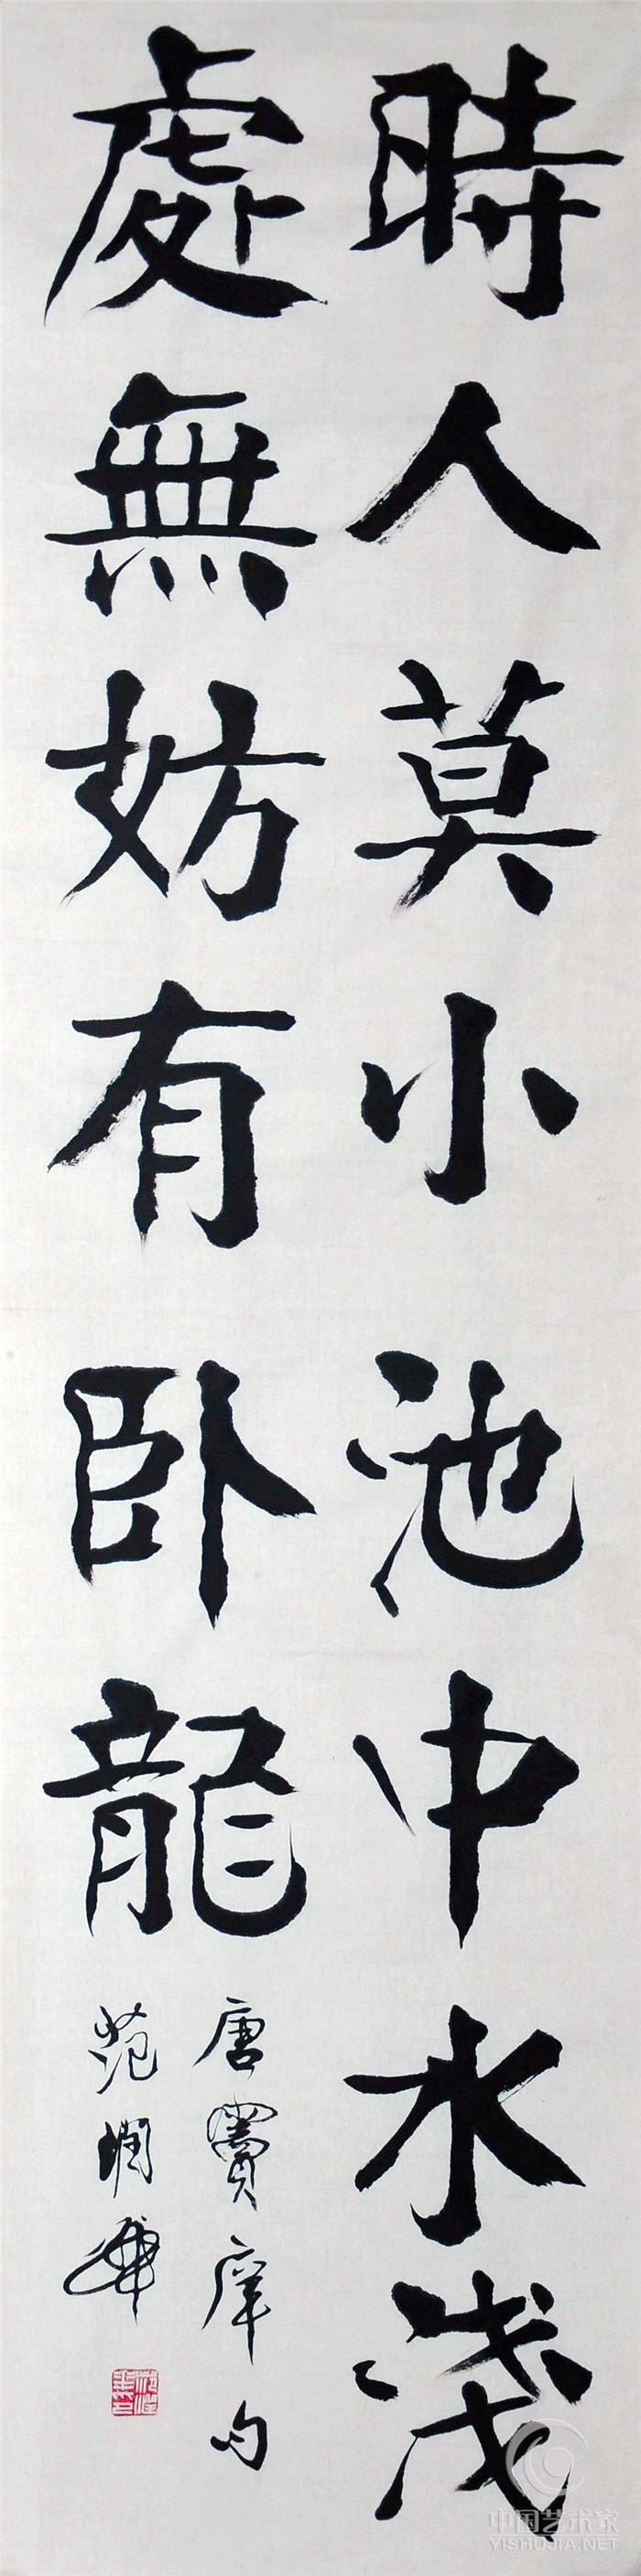 時人莫小池中水淺
處無妨有卧龍
唐竇庠句
范潤華
中国艺术家
YISHUJIA.NET